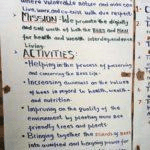 where Vulnerable nature and man can
live, work, co-exist with due respect.
MISSION - We promote the dignity and
self worth of both the Bees and Man
for health and wealth interdependence
Living.
ACTIVITIES:
• Helping in the process of preserving
and conserving the Bees life.
• Increasing awareness on the values
of bees in regard to health, wealth
and nutrition.
• Improving on the quality of the
environment by planting more bee
friendly trees and plants.
• Bringing together the friends of Bees
into